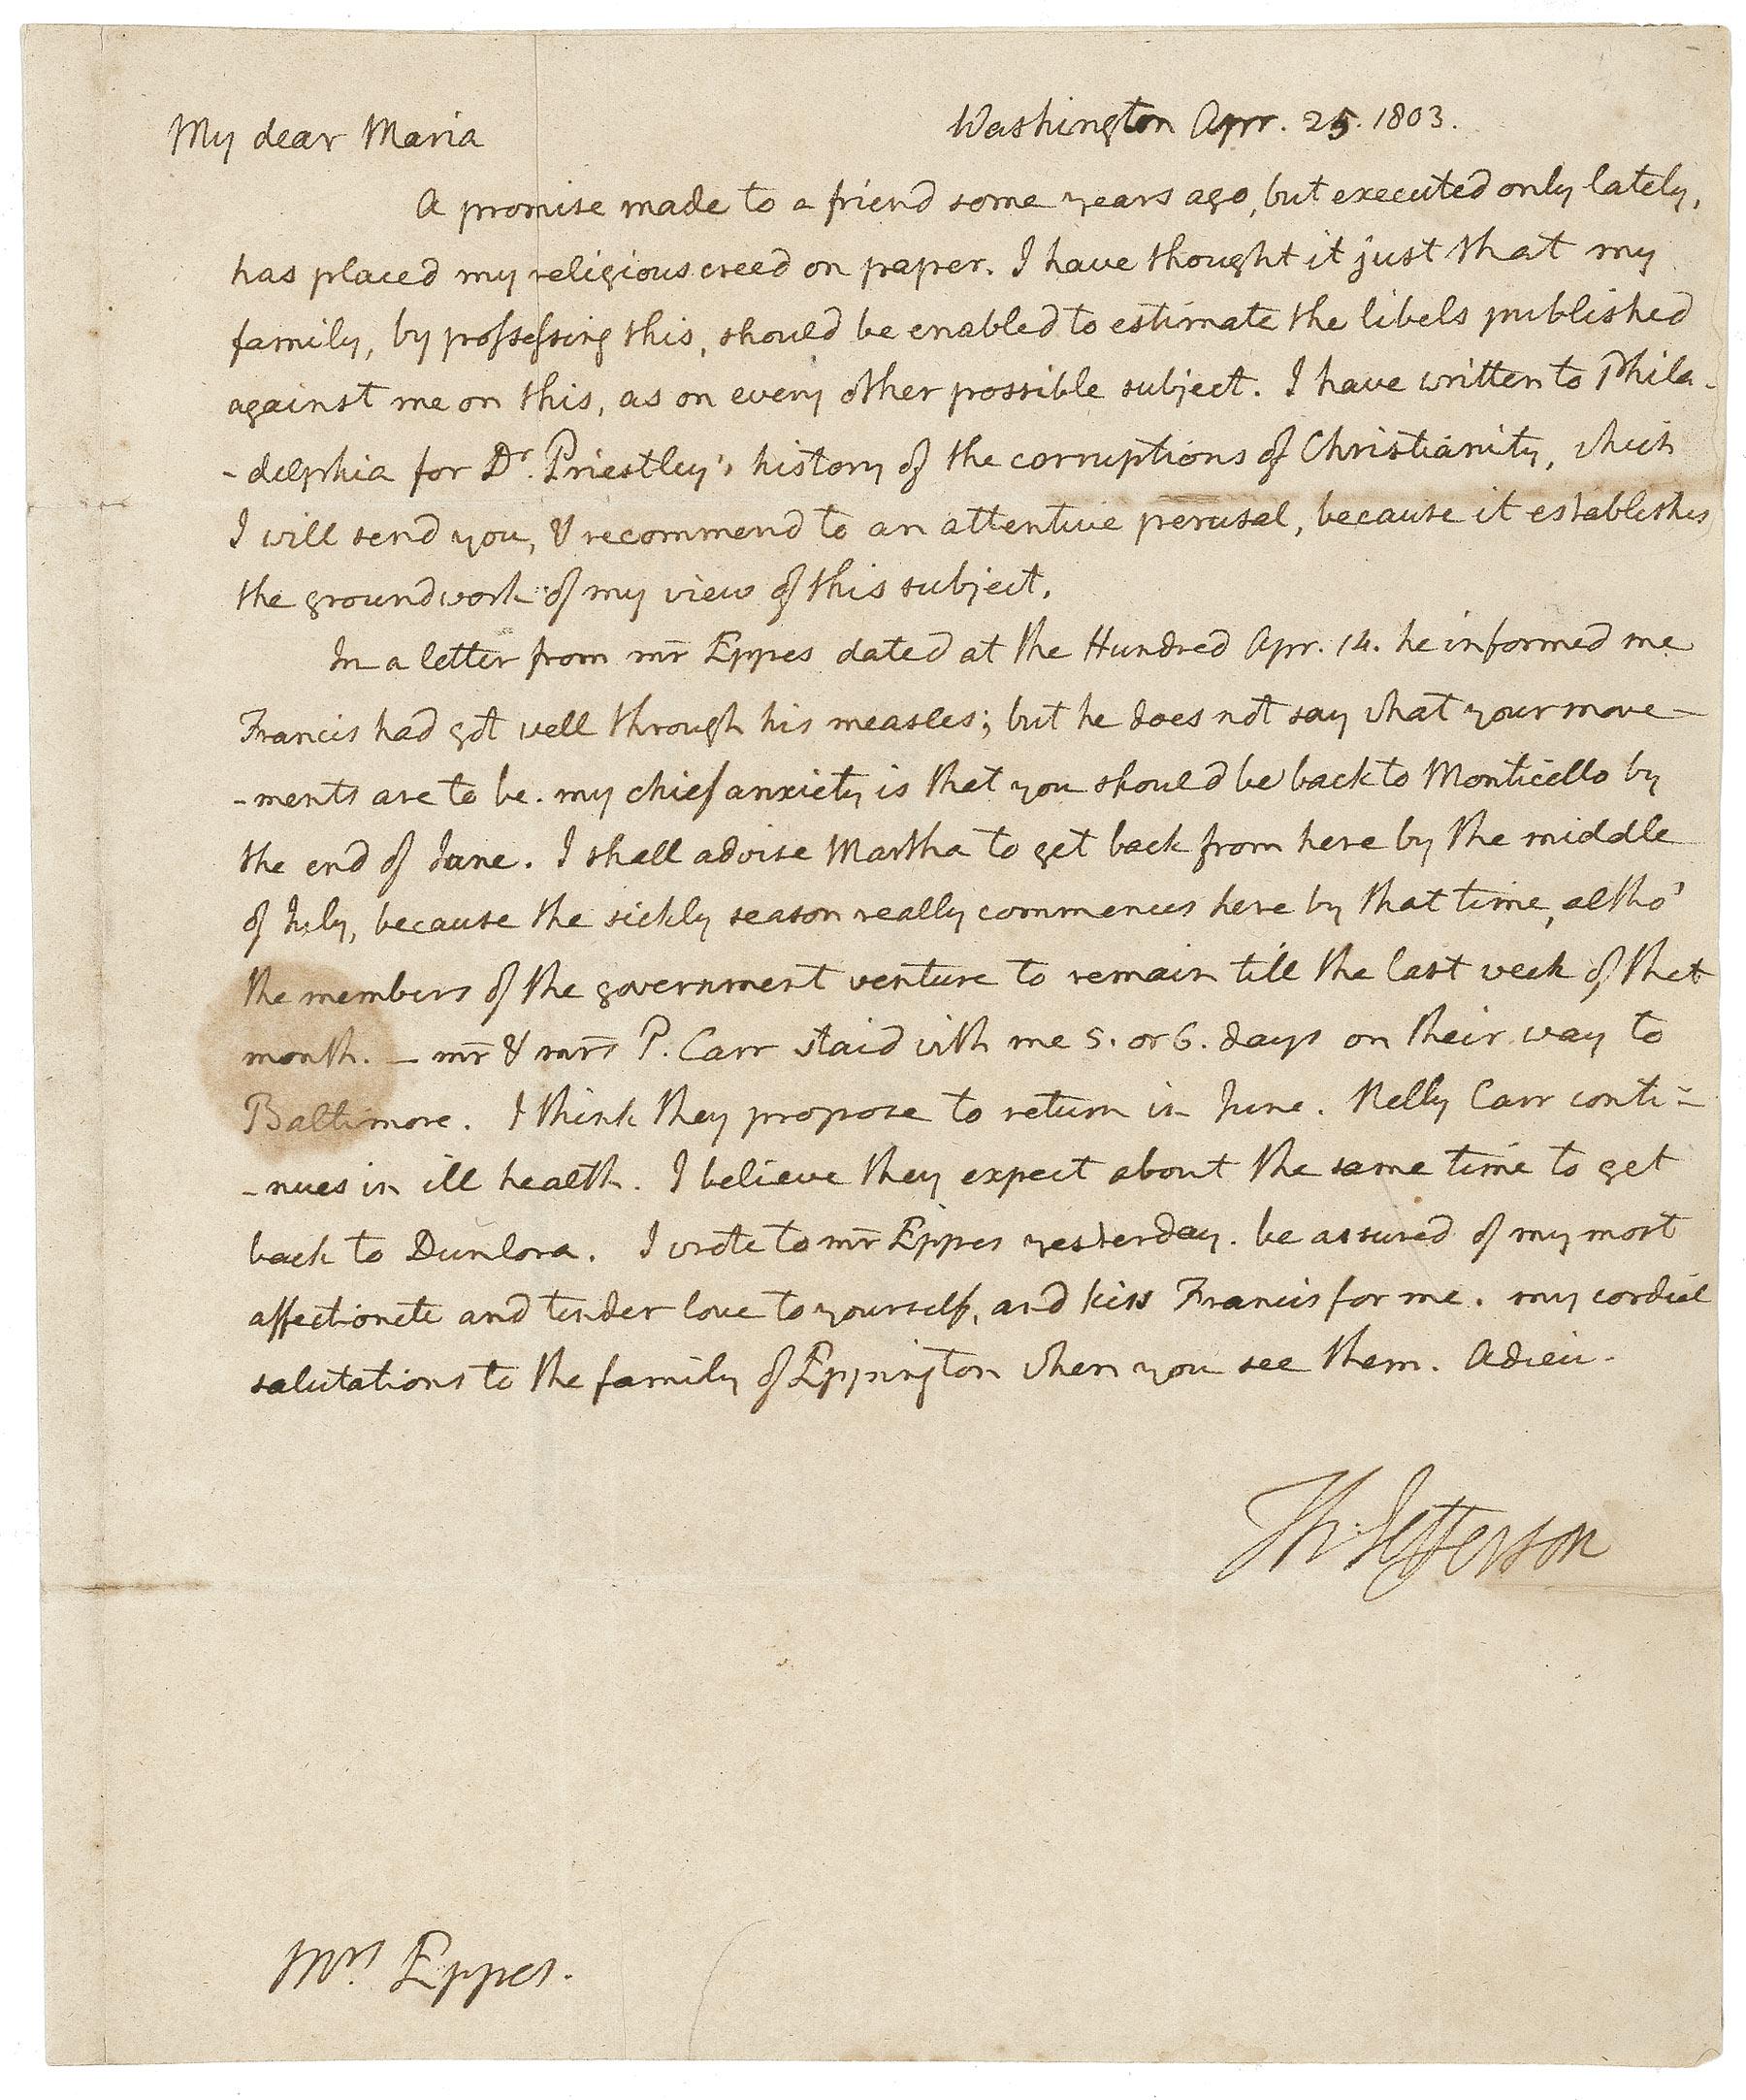 Washington Apr. 25. 1803.
My dear Maria
A promise made to a friend some years ago, but executed only lately,
has placed my religious creed on paper. I have thought it just that my
family, by possessing this, should be enabled to estimate the libels published
against me on this, as on every other possible subject. I have written to Phila-
-delphia for Dr. Priestley's history of the corruptions of Christianity, which
I will send you, & recommend to an attentive perusal, because it establishes
the groundwork of my view of this subject.
In a letter from mr Eppes dated at the Hundred Apr. 14. he informed me
Francis had got well through his measles; but he does not say what your move-
-ments are to be. my chief anxiety is that you should be back to Monticello by
the end of June. I shall advise Martha to get back from here by the middle
of July, because the sickly season really commences here by that time, altho'
the members of the government venture to remain till the last week of that
month. - mr & mrs P. Carr staid with me 5. or 6. days on their way to
Baltimore. I think they propose to return in June. Nelly Carr conti-
-nues in ill health. I believe they expect about the same time to get
back to Dunlora. I wrote to mr Eppes yesterday. be assured of my most
affectionate and tender love to yourself, and kiss Francis for me. my cordial
salutations to the family of Eppington when you see them. Adieu.
Th: Jefferson
Mrs. Eppes.